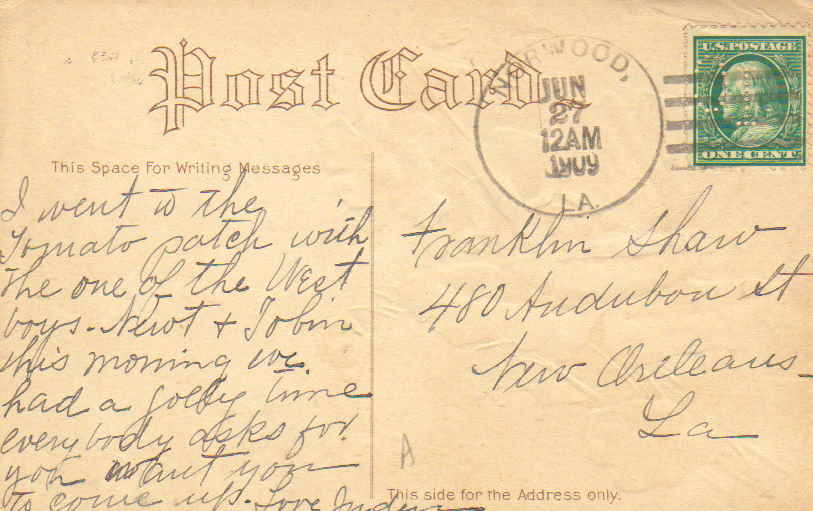 Post Card
NORWOOD,
JUN
27
12AM
1909
LA.
U.S. POSTAGE
ONE CENT
This Space For Writing Messages
I went to the
Tomato patch with
the one of the West
boys - Newt & Tobin
this morning we
had a jolly time
everybody asks for
you want you
to come up. Love
Franklin Shaw
480 Audubon St
New Orleans
La
A
This side for the Address only.